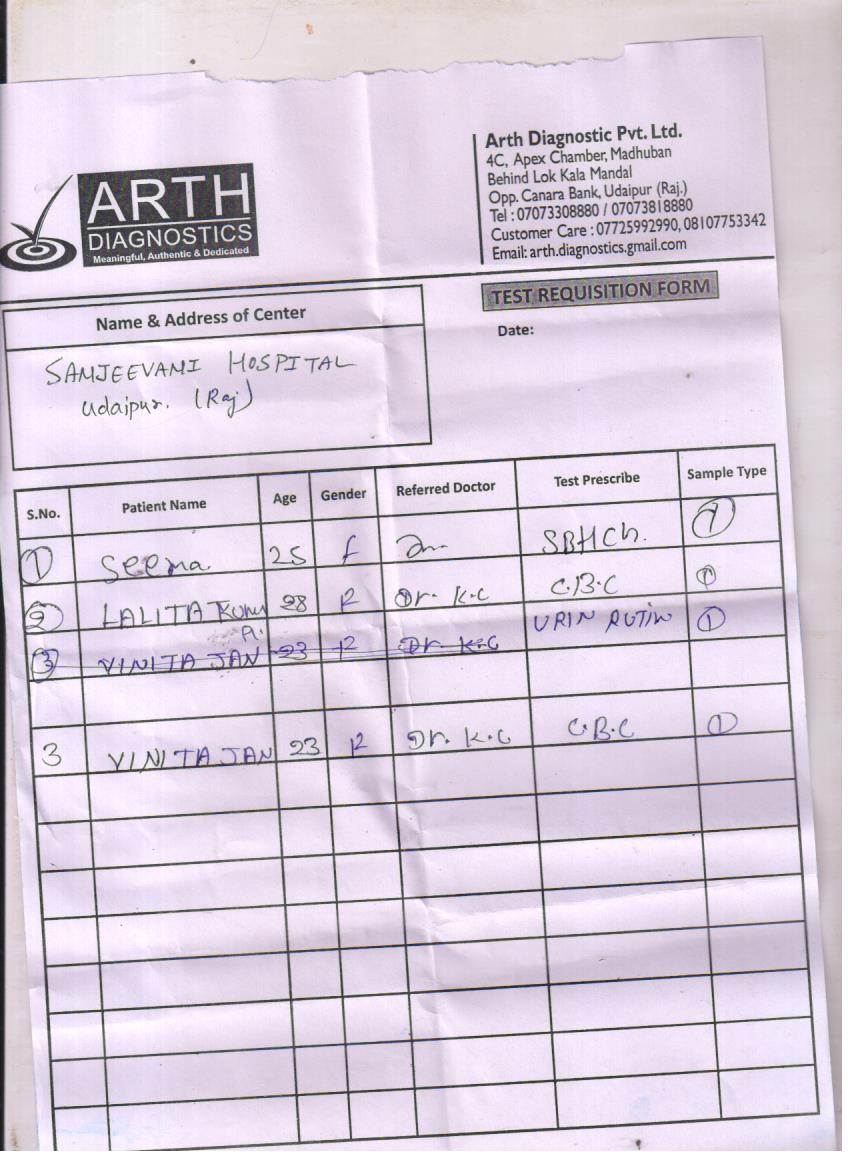 ARTH
DIAGNOSTICS
Meaningful, Authentic & Dedicated
Arth Diagnostic Pvt. Ltd.
4C, Apex Chamber, Madhuban
Behind Lok Kala Mandal
Opp. Canara Bank, Udaipur (Raj.)
Tel : 07073308880 / 07073818880
Customer Care : 07725992990, 08107753342
Email: arth.diagnostics.gmail.com
TEST REQUISITION FORM
Date:
Name & Address of Center
SAMJEEVAMI HOSPITAL
Udaipur. (Raj)
S.No. Patient Name Age Gender Referred Doctor Test Prescribe Sample Type
1 Seema 25 f
2 LALITA KUM 28 Dr. K.C C.B.C
URIN RUTIN 1
3 VINITA JAN 23 Dr. K.C
3 VINITA JAN 23 Dr. K.C C.B.C 1